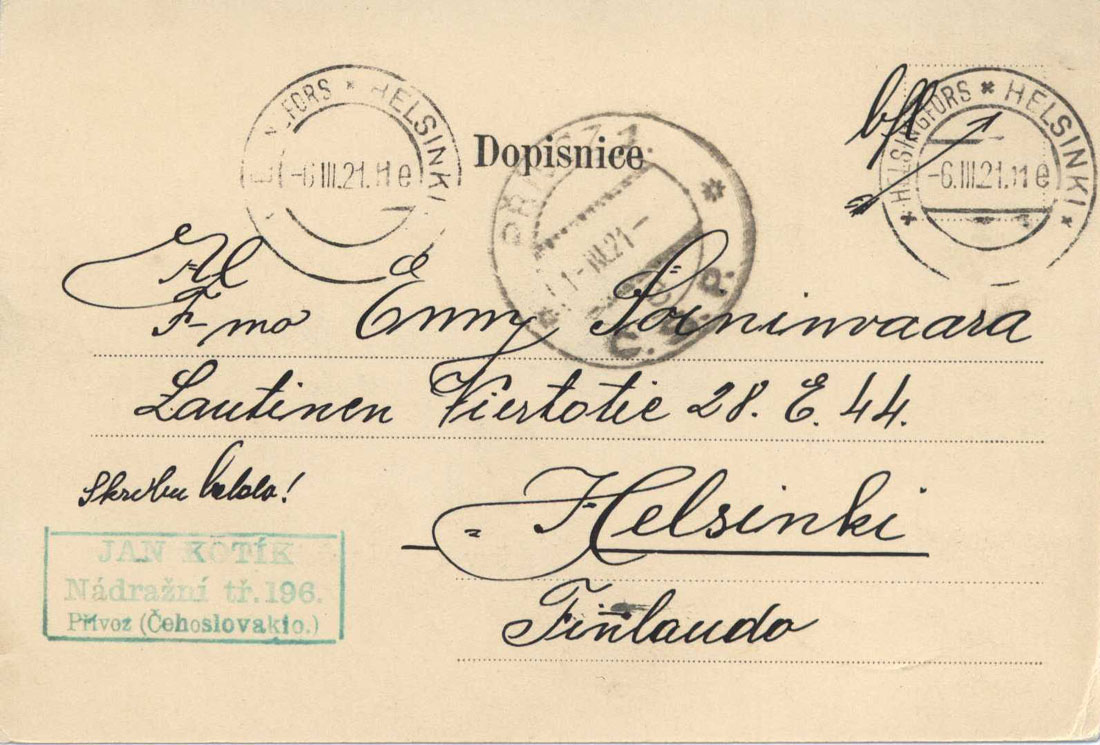 HELSINKI
-6.III.21.11 e
Dopisnice
PŘÍVOZ 1.
1-III.21-
Č.S.P.
HELSINGFORS * HELSINKI *
-6.III.21.11 e
Al
F-mo Enny Soininvaara
Lautinen Viertotie 28. E. 44.
Skribu
Helsinki
Finlando
JAN KOTÍK
Nádražní tř. 196.
Přívoz (Čehoslovakio.)